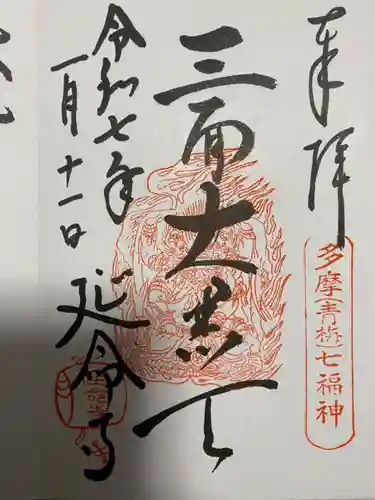 奉拝
多摩(青梅)七福神
三面大黒天
令和七年
一月十一日
延命寺